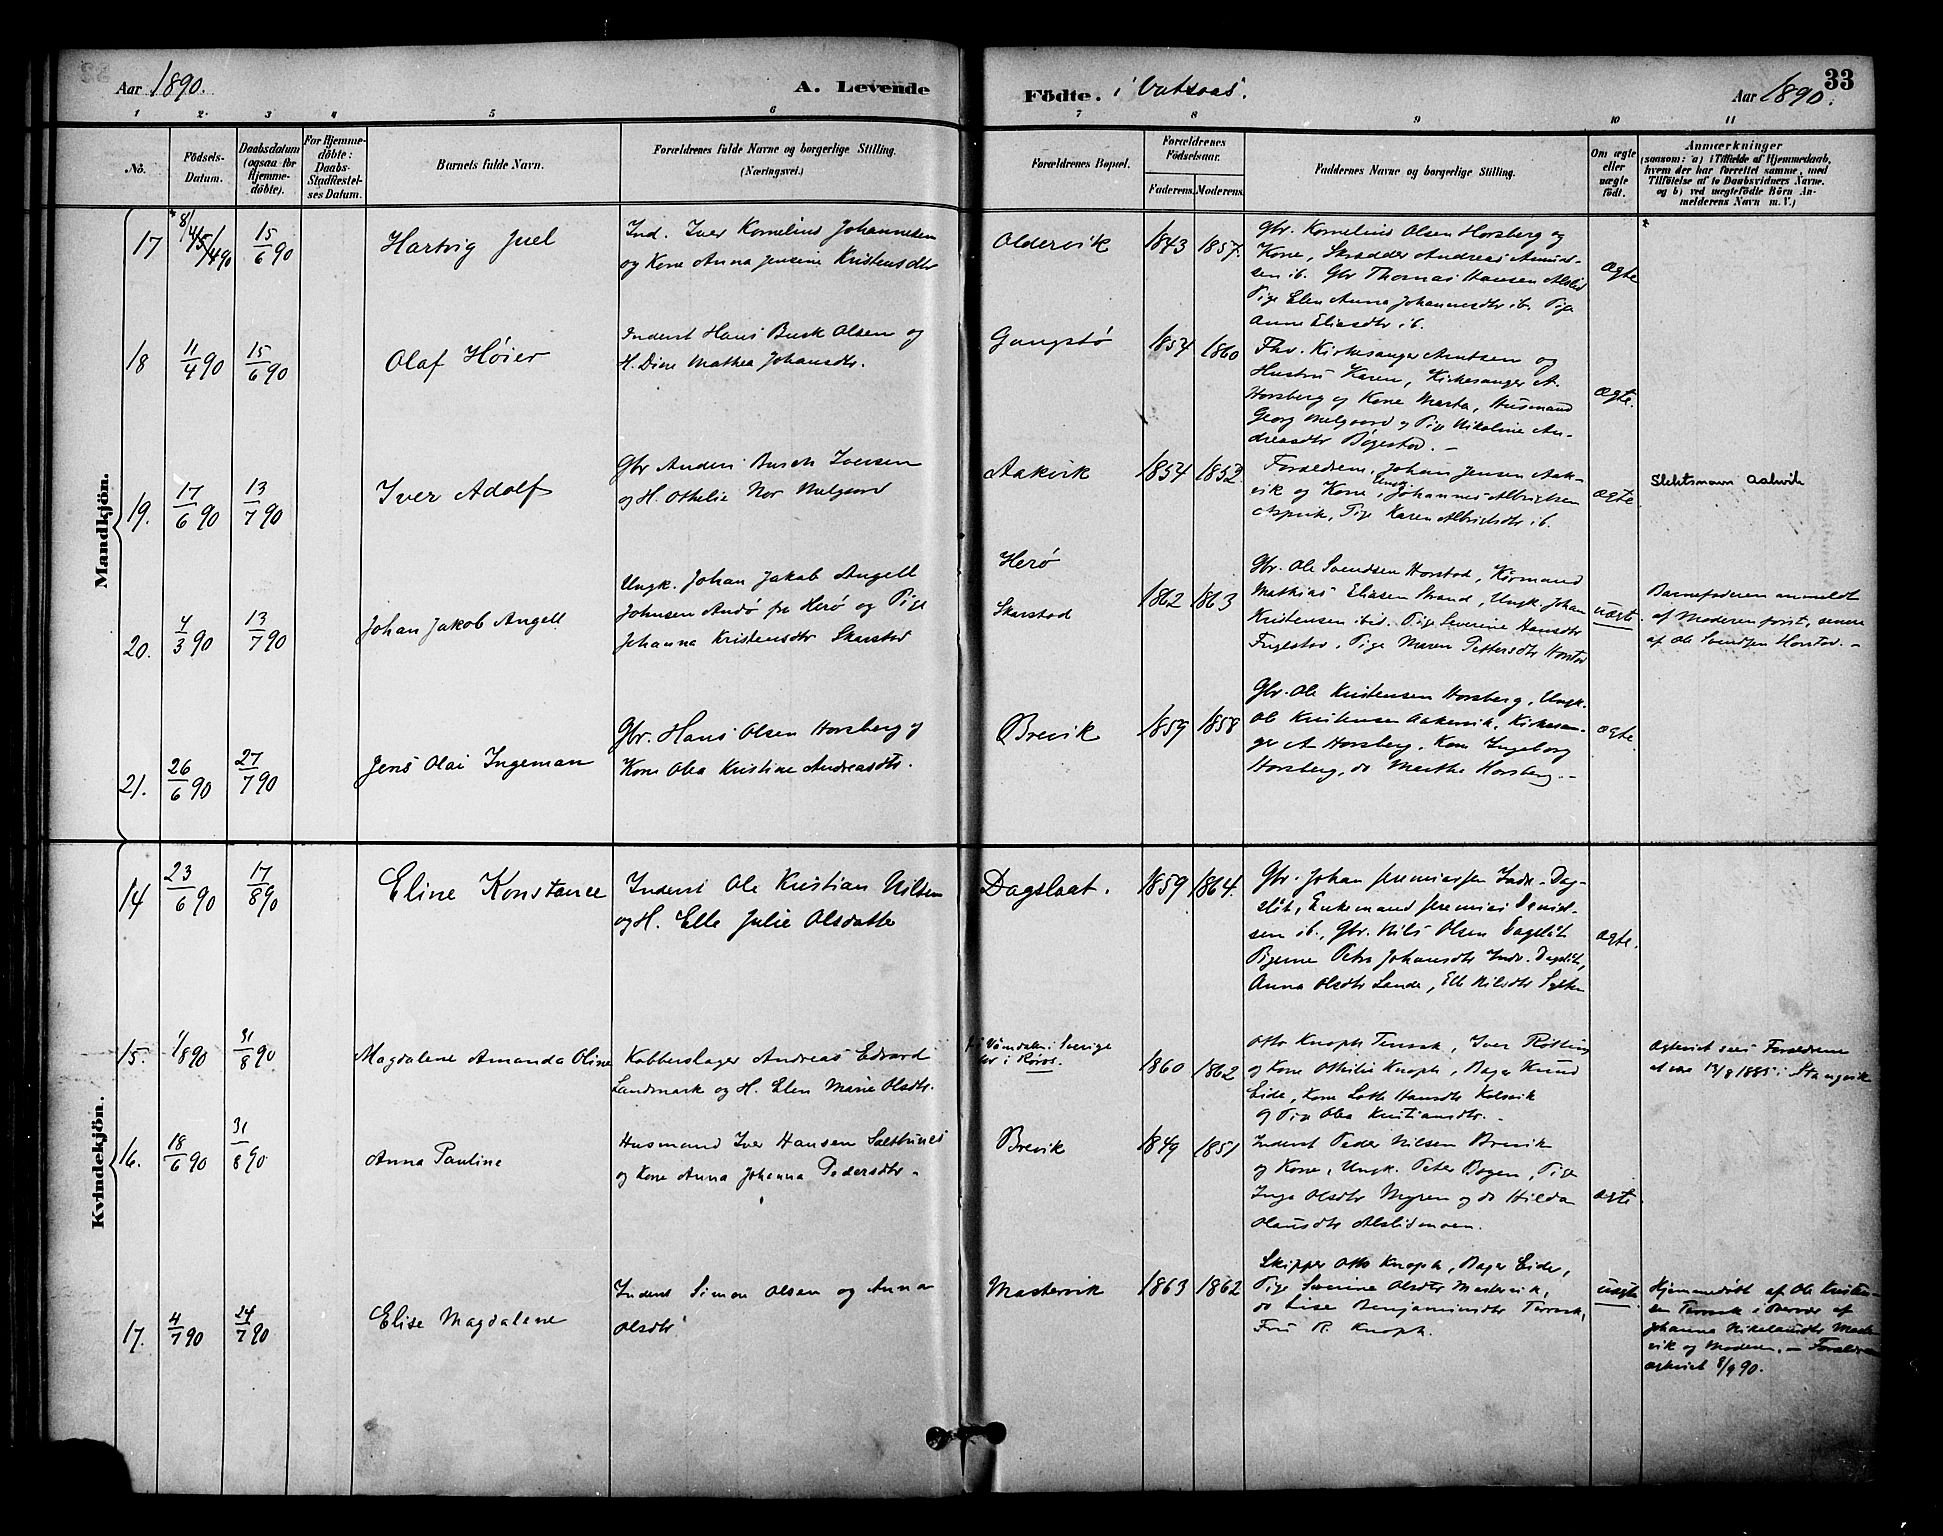 Aar 1890.
A. Levende
Födte. i Vatsaas.
Aar 1890.
33
1 2. 3 4 5 6 7 8 9 10 11
No.
Födsels-
Datum.
Daabsdatum
(ogsaa for
Hjemme-
döbte).
For Hjemme-
döbte:
Daabs-
Stadfæstel-
ses Datum.
Barnets fulde Navn.
Forældrenes fulde Navne og borgerlige Stilling.
(Næringsvei.)
Forældrenes Bopæl.
Forældrenes
Födselsaar.
Faderens. Moderens.
Faddernes Navne og borgerlige Stilling.
Om ægte
eller
uægte
födt.
Anmærkninger
(saasom: a) i Tilfælde af Hjemmedaab,
hvem der har forrettet samme, med
Tilföielse af to Daabsvidners Navne.
og b) ved uægtefödte Börn An-
melderens Navn m. V.)
Mandkjön.
17 15/6 90
Hartvig Juel
Ind. Iver Kornelius Johannesen
og Kone Anna Jensine Kristensdtr
Oldervik
1843 1857.
Gbr. Kornelius Olsen Horsberg og
Kone, Skrædder Andreas
sen ib. Gbr Thomas Hansen Alslid
Pige Elen Anna Johannesdtr ib. Pige
Anne Eliasdtr ib.
ægte
18 11/4 90 15/6 90
Olaf Höier
Inderst Hans Buck Olsen og
H. Dine Mathea Johansdtr.
Gangstö
1854 1860
Fhv. Kirkesanger Arntsen og
Hustru Karen, Kirkesanger A.
Horsberg og Kone Marta, Husmand
Georg Melgaard og Pige Nikoline An-
dreasdtr Bögestad. -
ægte.
19. 17/6 90 13/7 90
Iver Adolf
Gbr Anders Busch Iversen
og H. Othelie Nor Melgaard
Aakvik
1854 1852.
Forældrene, Johan Jensen Aak-
vik og Kone, Ungk. Johannes Albrigtsen
Aspvik, Pige Karen Albrigtsdtr ib.
ægte
Slektsnavn Aakvik
20. 4/3 90 13/7 90
Johan Jakob Angell
Ungk. Johan Jakob Angell
Johnsen Andö fra Herö og Pige
Johanna Kristensdtr Skarstad
Herö
Skarstad
1862 1863
Gbr. Ole Svendsen Horstad, Kårmand
Mathias Eliasen Strand, Ungk. Johan
Kristensen ibid. Pige Severine Hansdtr
Fugestad, Pige Maren Pettersdtr Horstad
uægte
Barnefaderen anmeldt
af Moderen först, senere
af Ole Svendsen Horstad. -
21. 26/6 90 27/7 90
Jens Olai Ingeman
Gbr. Hans Olsen Horsberg og
Kone Olea Kristine Andreasdtr.
Brevik
1859 1858
Gbr. Ole Kristensen Horsberg, Ungk.
Ole Kristensen Aakervik, Kirkesan-
ger A Horsberg, Kone Ingeborg
Horsberg, do Marthe Horsberg. -
ægte.
Kvindekjön.
14 23/6 90 17/8 90
Eline Konstance
Inderst Ole Kristian Nilsen
og H. Elle Julie Olsdatter
Dagslaat.
1859 1864.
Gbr. Johan Jeremiassen Indr. Dag-
slåt, Enkemand Jeremias Daniel-
sen ib., Gbr. Nils Olsen Dagslåt
Pigerne Petra Johansdtr Indr. Dagslåt,
Anna Olsdtr Lande, Elle Nilsdtr
ægte.
15. 1/8 90 31/8 90
Magdalene Amanda Oline
Kobberslager Andreas Edvard
Landmark og H. Elen Marie Olsdtr.
Sverige
i Röros.
1860 1862
Otto Knoph Terraak, Iver Rötting
og Kone Othilie Knoph, Bager Knud
Eide, Kone Lotte Hansdtr Kolsvik
og Pige Olea Kristiansdtr. -
Ægteviet sees Forældrene
at være 13/9 1885 i Stangvik
16. 18/6 90 31/8 90
Anna Pauline
Husmand Iver Hansen
og Kone Anna Johanna Pedersdtr. -
Brevik
1849 1851
Inderst Peder Nilsen Brevik
og Kone, Ungk. Peter Bogen, Pige
Inga Olsdtr Myren og do Hilda
Olausdtr Alslidmoen.
ægte
17. 4/7 90 24/7 90
Elise Magdalene
Inderst Simon Olsen og Anna
Olsdtr
Mastervik
1863 1862
Skipper Otto Knoph, Bager Eide,
Pige Severine Olsdtr Mastervik,
do Lise Benjaminsdtr Terraak,
Fru R. Knoph.
uægte
Hjemmedöbt af Ole Kristen-
sen Terraak i Overvær af
Johanna Nikolausdtr Master-
vik og Moderen. - Forældrene
ægteviet 8/9 90.